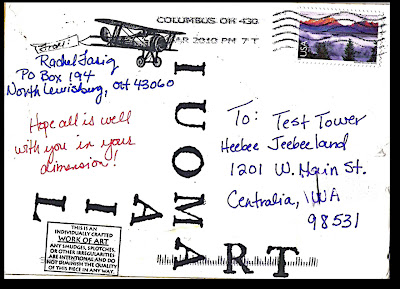 COLUMBUS OH 430
MAR 2010 PM 7 T
USA
From:
Rachel Farig
PO Box 194
North Lewisburg, OH 43060
Hope all is well
with you in your
dimension!
To: Test Tower
Heebee Jeebeeland
1201 W. Main St.
Centralia, WA
98531
IUOMA
MAIL
ART
THIS IS AN
INDIVIDUALLY CRAFTED
WORK OF ART
ANY SMUDGES, SPLOTCHES,
OR OTHER IRREGULARITIES
ARE INTENTIONAL AND DO
NOT DIMINISH THE QUALITY
OF THIS PIECE IN ANY WAY.